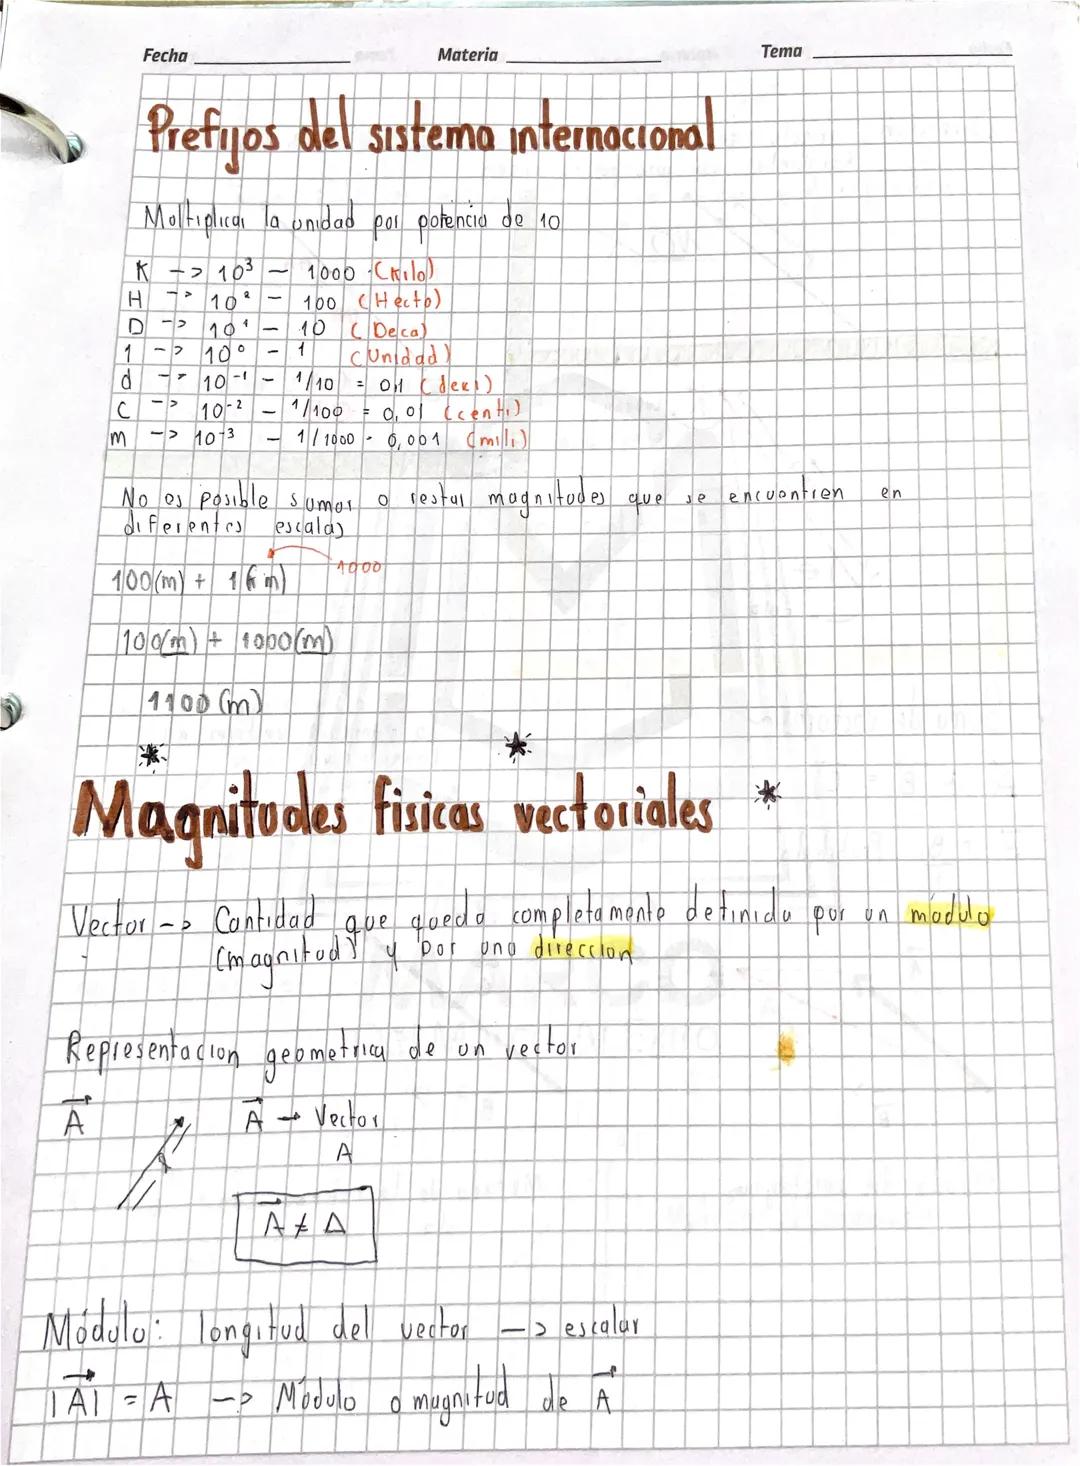 Fecha Materia Tema
Prefijos del sistema internacional
Multiplicar la unidad por potencia de 10
K -> 10³ - 1000 (Kilo)
H -> 10² - 100 (Hecto)
D -> 10¹ - 10 (Deca)
1 -> 10⁰ - 1 (Unidad)
d -> 10⁻¹ - 1/10 = 0,1 (deci)
C -> 10⁻² - 1/100 = 0,01 (centi)
m -> 10⁻³ - 1/1000 - 0,001 (mili)
No es posible sumar o restar magnitudes que se encuentren en
diferentes escalas
1000
100(m) + 1(km)
100(m) + 1000(m)
1100 (m)
Magnitudes fisicas vectoriales
Vector -> Cantidad que queda completamente definida por un módulo
(magnitud) y por una direccion
Representacion geometrica de un vector
A⃗ A⃗ → Vector
A
A⃗ ≠ A
Módulo: longitud del vector -> escalar
|A⃗| = A -> Módulo o magnitud de A⃗